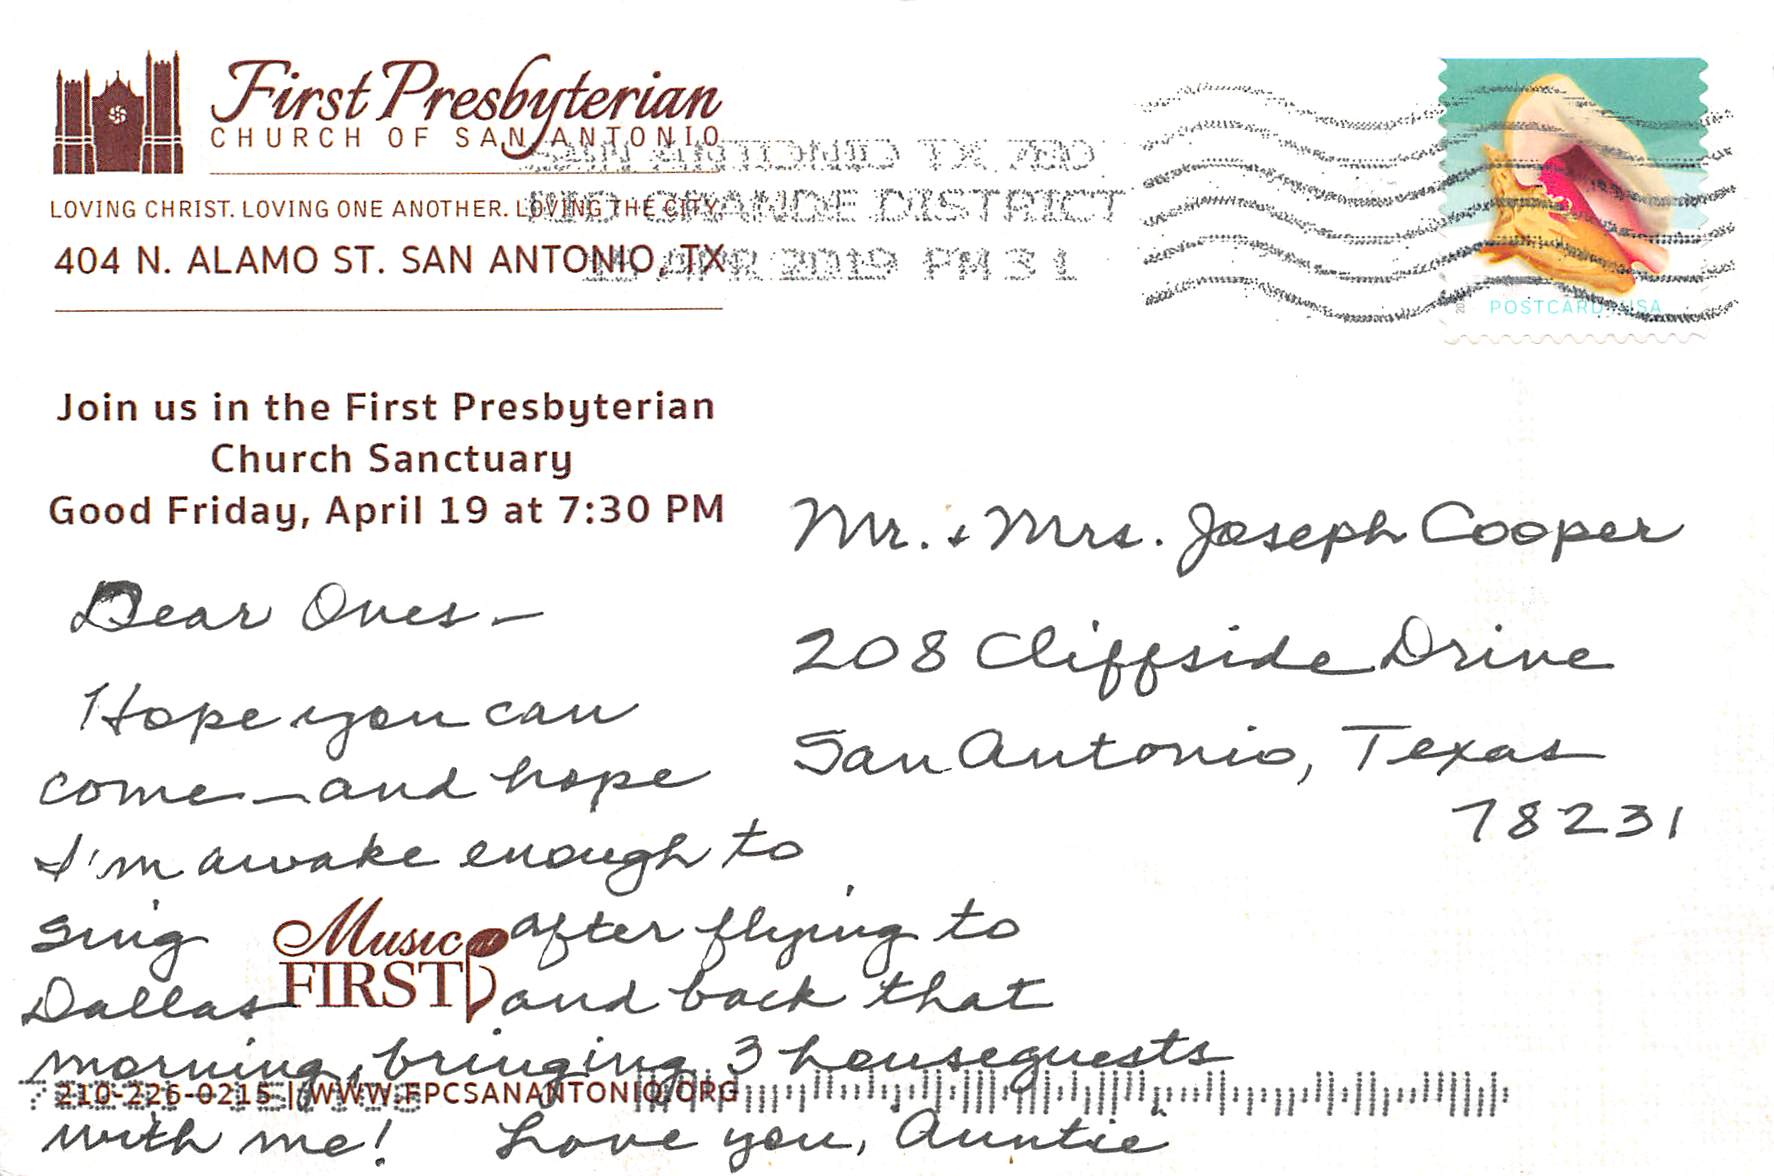 First Presbyterian
CHURCH OF SAN ANTONIO
LOVING CHRIST. LOVING ONE ANOTHER. LOVING THE CITY.
404 N. ALAMO ST. SAN ANTONIO, TX
SAN ANTONIO TX 780
RIO GRANDE DISTRICT
APR 2019 PM 3 L
POSTCARD USA
Join us in the First Presbyterian
Church Sanctuary
Good Friday, April 19 at 7:30 PM
Mr. & Mrs. Joseph Cooper
208 Cliffside Drive
San Antonio, Texas
78231
Dear Ones –
Hope you can
come – and hope
I'm awake enough to
sing after flying to
Dallas and back that
morning, bringing 3 houseguests
with me! Love you, Auntie
Music
FIRST
210-226-0215 | WWW.FPCSANANTONIO.ORG